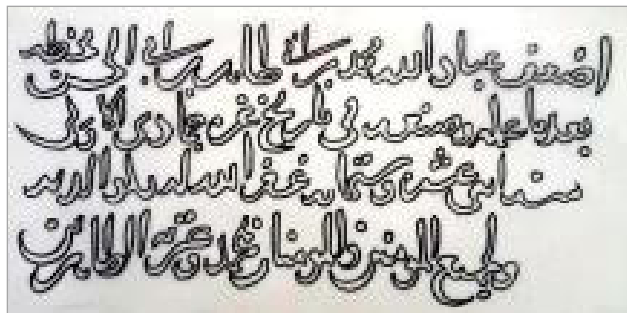 اضعف عباد الله محمد بن ابى طاهر بن ابى الحسن بخطه
بعد ما عمله وصنعه فى تاريخ غرة جمادى الاول
سنه اثنى عشره وستمائه غفر الله له ولوالديه
ولجميع المومنين والمومنات بمحمد وعترته الطاهرين